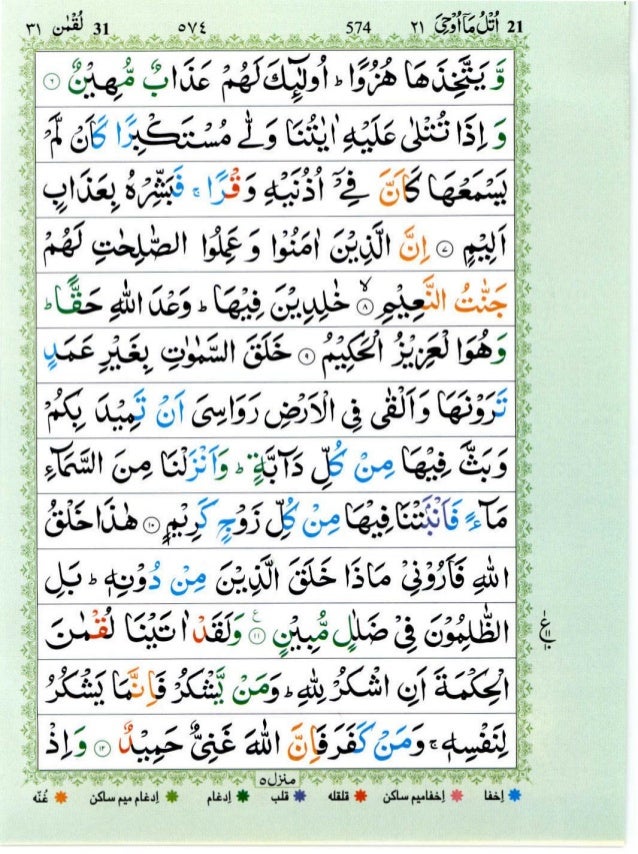 21 اُتْلُ مَاۤ اُوْحِیَ ٢١ 574 ٥٧٤ 31 لُقْمٰن ٣١
وَّ یَتَّخِذَهَا هُزُوًا ؕ اُولٰٓىِٕكَ لَهُمْ عَذَابٌ مُّهِیْنٌ ۝۶
وَ اِذَا تُتْلٰی عَلَیْهِ اٰیٰتُنَا وَلّٰی مُسْتَكْبِرًا كَاَنْ لَّمْ
یَسْمَعْهَا كَاَنَّ فِیْۤ اُذُنَیْهِ وَقْرًا ۚ فَبَشِّرْهُ بِعَذَابٍ
اَلِیْمٍ ۝۷ اِنَّ الَّذِیْنَ اٰمَنُوْا وَ عَمِلُوا الصّٰلِحٰتِ لَهُمْ
جَنّٰتُ النَّعِیْمِ ۝۸ۙ خٰلِدِیْنَ فِیْهَا ؕ وَعْدَ اللّٰهِ حَقًّا ؕ
وَ هُوَ الْعَزِیْزُ الْحَكِیْمُ ۝۹ خَلَقَ السَّمٰوٰتِ بِغَیْرِ عَمَدٍ
تَرَوْنَهَا وَ اَلْقٰی فِی الْاَرْضِ رَوَاسِیَ اَنْ تَمِیْدَ بِكُمْ
وَ بَثَّ فِیْهَا مِنْ كُلِّ دَآبَّةٍ ؕ وَ اَنْزَلْنَا مِنَ السَّمَآءِ
مَآءً فَاَنْۢبَتْنَا فِیْهَا مِنْ كُلِّ زَوْجٍ كَرِیْمٍ ۝۱۰ هٰذَا خَلْقُ
اللّٰهِ فَاَرُوْنِیْ مَاذَا خَلَقَ الَّذِیْنَ مِنْ دُوْنِهٖ ؕ بَلِ
الظّٰلِمُوْنَ فِیْ ضَلٰلٍ مُّبِیْنٍ ۝۱۱ۧ وَ لَقَدْ اٰتَیْنَا لُقْمٰنَ
الْحِكْمَةَ اَنِ اشْكُرْ لِلّٰهِ ؕ وَ مَنْ یَّشْكُرْ فَاِنَّمَا یَشْكُرُ
لِنَفْسِهٖ ۚ وَ مَنْ كَفَرَ فَاِنَّ اللّٰهَ غَنِیٌّ حَمِیْدٌ ۝۱۲ وَ اِذْ
منزل ٥
اِخفا اِخفامیم ساکن قلقله قلب اِدغام اِدغام میم ساکن غُنّه